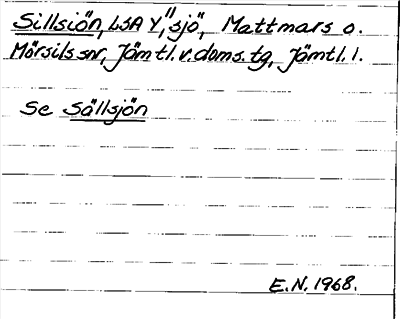 Sillsiön, LSA Y, "sjö", Mattmars o.
Mörsils snr, Jämtl. v. doms. tg, Jämtl. l.
Se Sällsjön
E.N. 1968.